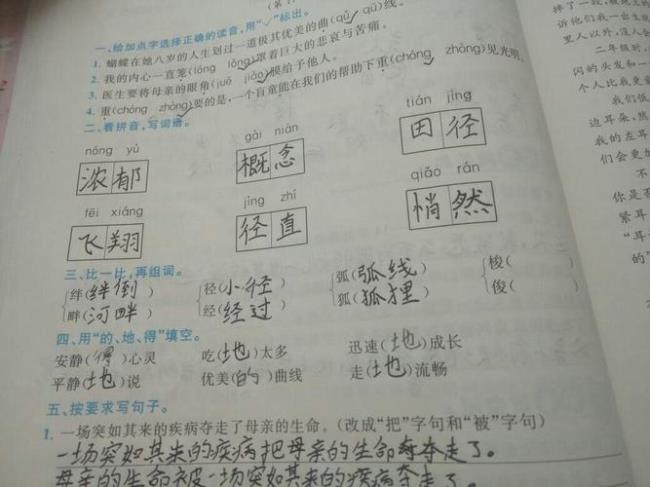 一、给加点字选择正确的读音,用“✓”标出。
1. 蝴蝶在她八岁的人生划过一道极其优美的曲(qū qǔ)线。
2. 我的内心一直笼(lóng lǒng)罩着巨大的悲哀与苦痛。
3. 医生要将母亲的眼角(jué jiǎo)膜给予他人。
4. 重(chóng zhòng)要的是,一个盲童能在我们的帮助下重(chóng zhòng)见光明。
二、看拼音,写词语。
nóng yù gài niàn tián jìng
浓郁 概念 田径
fēi xiáng jìng zhí qiǎo rán
飞翔 径直 悄然
三、比一比,再组词。
绊(绊倒) 径(小径) 弧(弧线) 梭( )
畔(河畔) 经(经过) 狐(狐狸) 俊( )
四、用“的、地、得”填空。
安静(得)心灵 吃(地)太多 迅速(地)成长
平静(地)说 优美(的)曲线 走(地)流畅
五、按要求写句子。
1. 一场突如其来的疾病夺走了母亲的生命。(改成“把”字句和“被”字句)
一场突如其来的疾病把母亲的生命夺走了。
母亲的生命被一场突如其来的疾病夺走了。
诉他们我一出生
里人以外,没人
二年级时,
闪的头发和一
个人比我更
我们低
边耳朵,然
我的左耳
们会更加
不
你是否
紧耳
“耳
的”